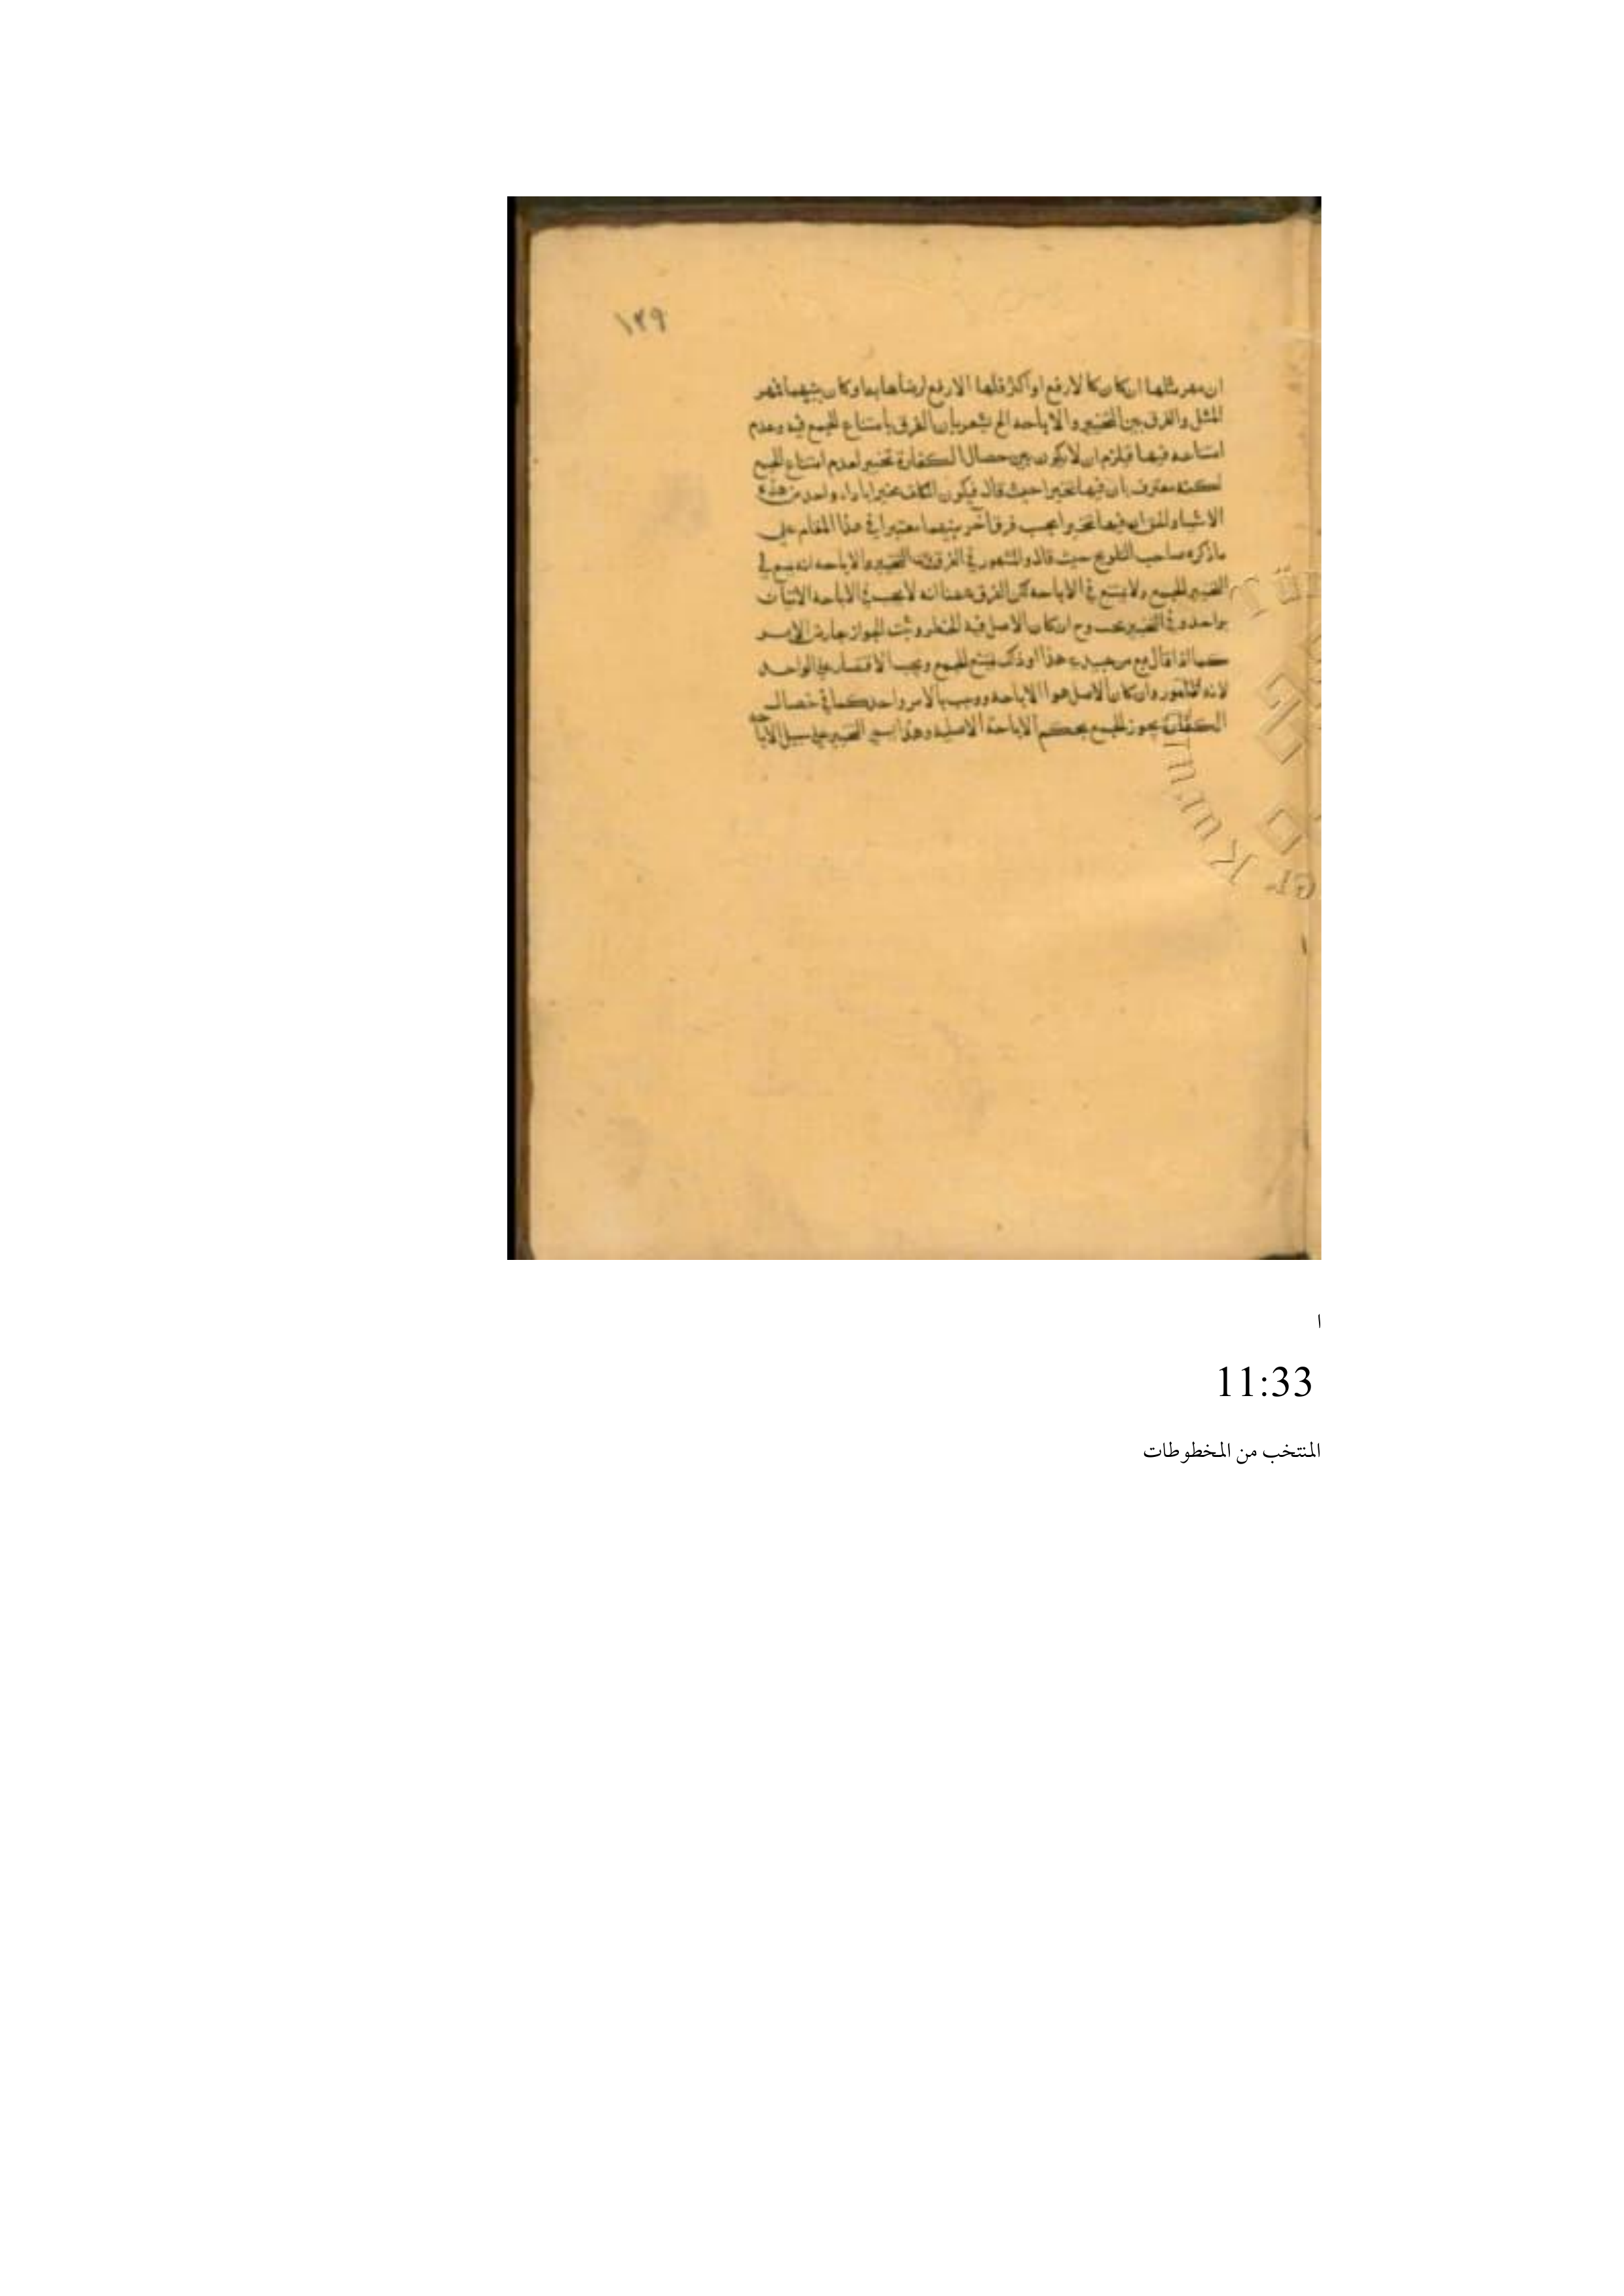 ١٢٩
ان مهر مثلها ان كان كالارفع او اكثر فلها الارفع لرضاها بها وكان بينهما فمهر
المثل والفرق بين التخيير والاباحه الخ يشعر بان الفرق بامتناع الجمع فيه وعدم
امتناعه فيها فيلزم ان لا يكون بين خصال الكفارة تخيير لعدم امتناع الجمع
لكنه معترف بان فيها تخييرا حيث قال فيكون المكلف مخيرا باداء واحد من هذه
الاشياء والحق ان فيها تخييرا يجب فرق آخر بينهما معتبرا في هذا المقام على
ما ذكره صاحب التلويح حيث قال والمشهور في الفرق بين التخيير والاباحه انه يمتنع في
التخيير الجمع ولا يمتنع في الاباحه لكن الفرق ههنا انه لا يجب في الاباحه الاتيان
بواحد وفي التخيير يجب وح ان كان الاصل فيه الحظر وثبت الجواز بعارض الامر
كما اذا قال بع من عبيدي هذا او ذاك يمتنع الجمع ويجب الاقتصار على الواحد
لانه المأمور وان كان الاصل هو الاباحه ووجب بالامر واحد كما في خصال
الكفارة يجوز الجمع بحكم الاباحة الاصليه وهذا يسمى التخيير على سبيل الاباحه
ا
11:33
المنتخب من المخطوطات